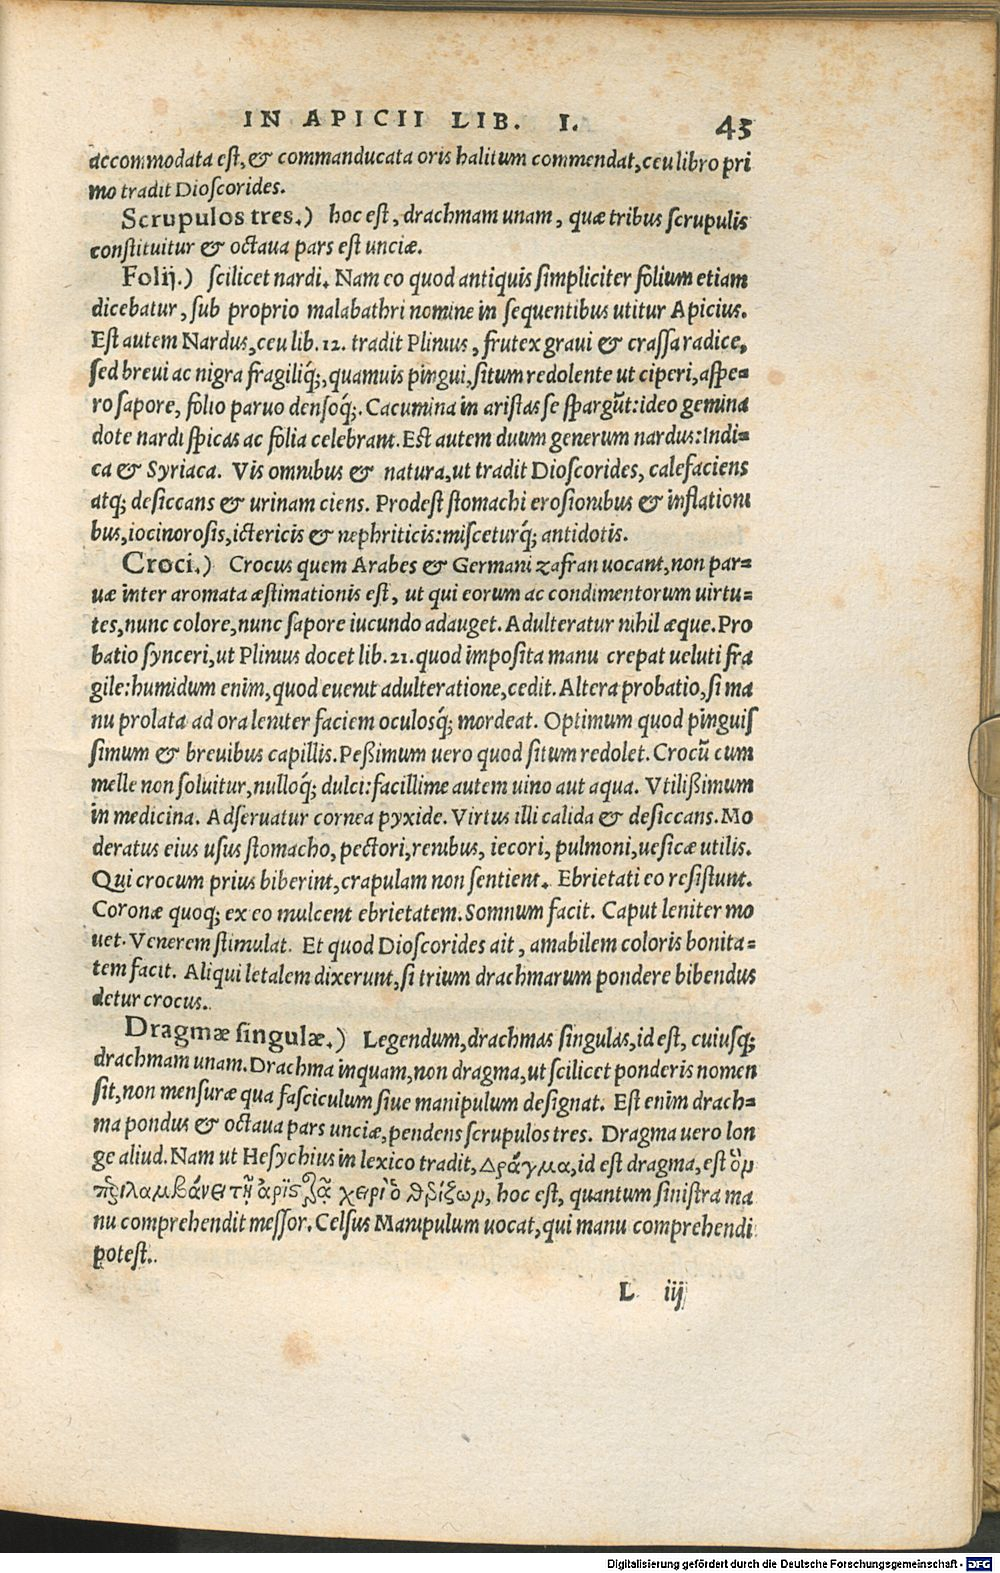 IN APICII LIB. I. 43
accommodata est, & commanducata oris halitum commendat, ceu libro pri
mo tradit Dioscorides.
Scrupulos tres.) hoc est, drachmam unam, quæ tribus scrupulis
constituitur & octaua pars est unciæ.
Folij.) scilicet nardi. Nam eo quod antiquis simpliciter folium etiam
dicebatur, sub proprio malabathri nomine in sequentibus utitur Apicius.
Est autem Nardus, ceu lib. 12. tradit Plinius, frutex graui & crassa radice,
sed breui ac nigra fragiliq́;, quamuis pingui, situm redolente ut ciperi, aspe=
ro sapore, folio paruo densoq́;. Cacumina in aristas se spargūt: ideo gemina
dote nardi spicas ac folia celebrant. Est autem duum generum nardus: Indi=
ca & Syriaca. Vis omnibus & natura, ut tradit Dioscorides, calefaciens
atq; desiccans & urinam ciens. Prodest stomachi erosionibus & inflationi
bus, iocinorosis, ictericis & nephriticis: misceturq́; antidotis.
Croci.) Crocus quem Arabes & Germani zafran uocant, non par=
uæ inter aromata æstimationis est, ut qui eorum ac condimentorum uirtu=
tes, nunc colore, nunc sapore iucundo adauget. Adulteratur nihil æque. Pro
batio synceri, ut Plinius docet lib. 21. quod imposita manu crepat ueluti fra
gile: humidum enim, quod euenit adulteratione, cedit. Altera probatio, si ma
nu prolata ad ora leniter faciem oculosq́; mordeat. Optimum quod pinguis
simum & breuibus capillis. Peßimum uero quod situm redolet. Crocū cum
melle non soluitur, nulloq́; dulci: facillime autem uino aut aqua. Vtilißimum
in medicina. Adseruatur cornea pyxide. Virtus illi calida & desiccans. Mo
deratus eius usus stomacho, pectori, renibus, iecori, pulmoni, uesicæ utilis.
Qui crocum prius biberint, crapulam non sentient. Ebrietati eo resistunt.
Coronæ quoq; ex eo mulcent ebrietatem. Somnum facit. Caput leniter mo
uet. Venerem stimulat. Et quod Dioscorides ait, amabilem coloris bonita=
tem facit. Aliqui letalem dixerunt, si trium drachmarum pondere bibendus
detur crocus.
Dragmæ singulæ.) Legendum, drachmas singulas, id est, cuiusq;
drachmam unam. Drachma inquam, non dragma, ut scilicet ponderis nomen
sit, non mensuræ qua fasciculum siue manipulum designat. Est enim drach=
ma pondus & octaua pars unciæ, pendens scrupulos tres. Dragma uero lon
ge aliud. Nam ut Hesychius in lexico tradit, Δράγμα, id est dragma, est ὃν
πριλαμβάνει τῇ ἀριστερᾷ χειρὶ ὁ θερίζων, hoc est, quantum sinistra ma
nu comprehendit messor. Celsus Manipulum uocat, qui manu comprehendi
potest.
L iij
Digitalisierung gefördert durch die Deutsche Forschungsgemeinschaft - DFG